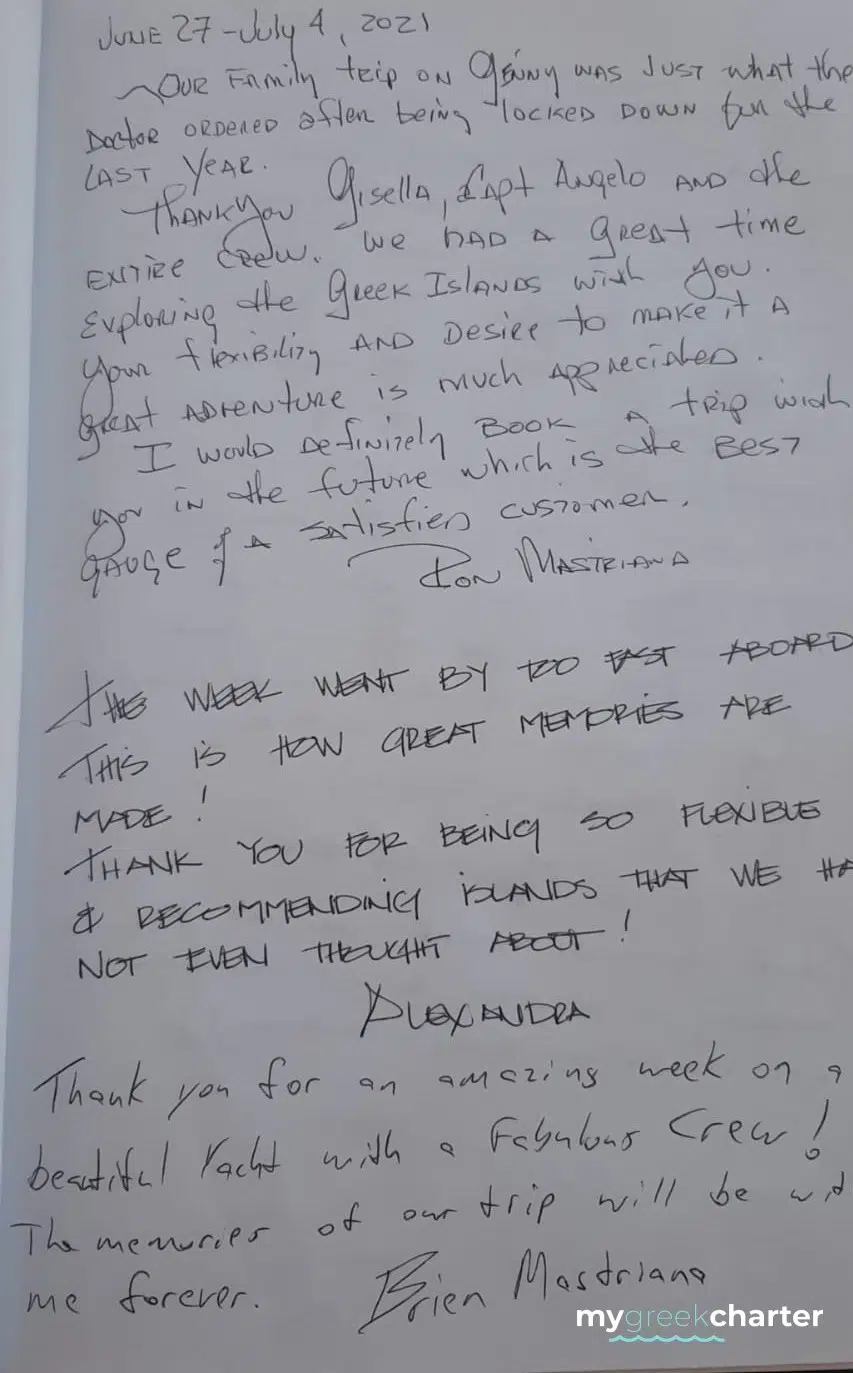 JUNE 27 - July 4, 2021
OUR FAMILY trip ON Genny WAS JUST what the
DOCTOR ORDERED after being LOCKED DOWN for the
LAST YEAR.
THANK YOU Gisella, Capt Angelo AND the
ENTIRE CREW. We HAD A great time
Exploring the Greek ISLANDS with you.
Your flexibility AND DESIRE to MAKE it A
great ADVENTURE is much Appreciated.
I would Definitely BOOK A trip with
you in the future which is the BEST
GAUGE of A satisfied customer.
Ron MASTRIANA
THE WEEK WENT BY TOO FAST ABOARD
THIS IS HOW GREAT MEMORIES ARE
MADE!
THANK YOU FOR BEING SO FLEXIBLE
& RECOMMENDING ISLANDS THAT WE HA
NOT EVEN THOUGHT ABOUT!
ALEXANDRA
Thank you for an amazing week on a
beautiful Yacht with a Fabulous Crew!
The memories of our trip will be wit
me forever. Brien Mastriana
mygreekcharter